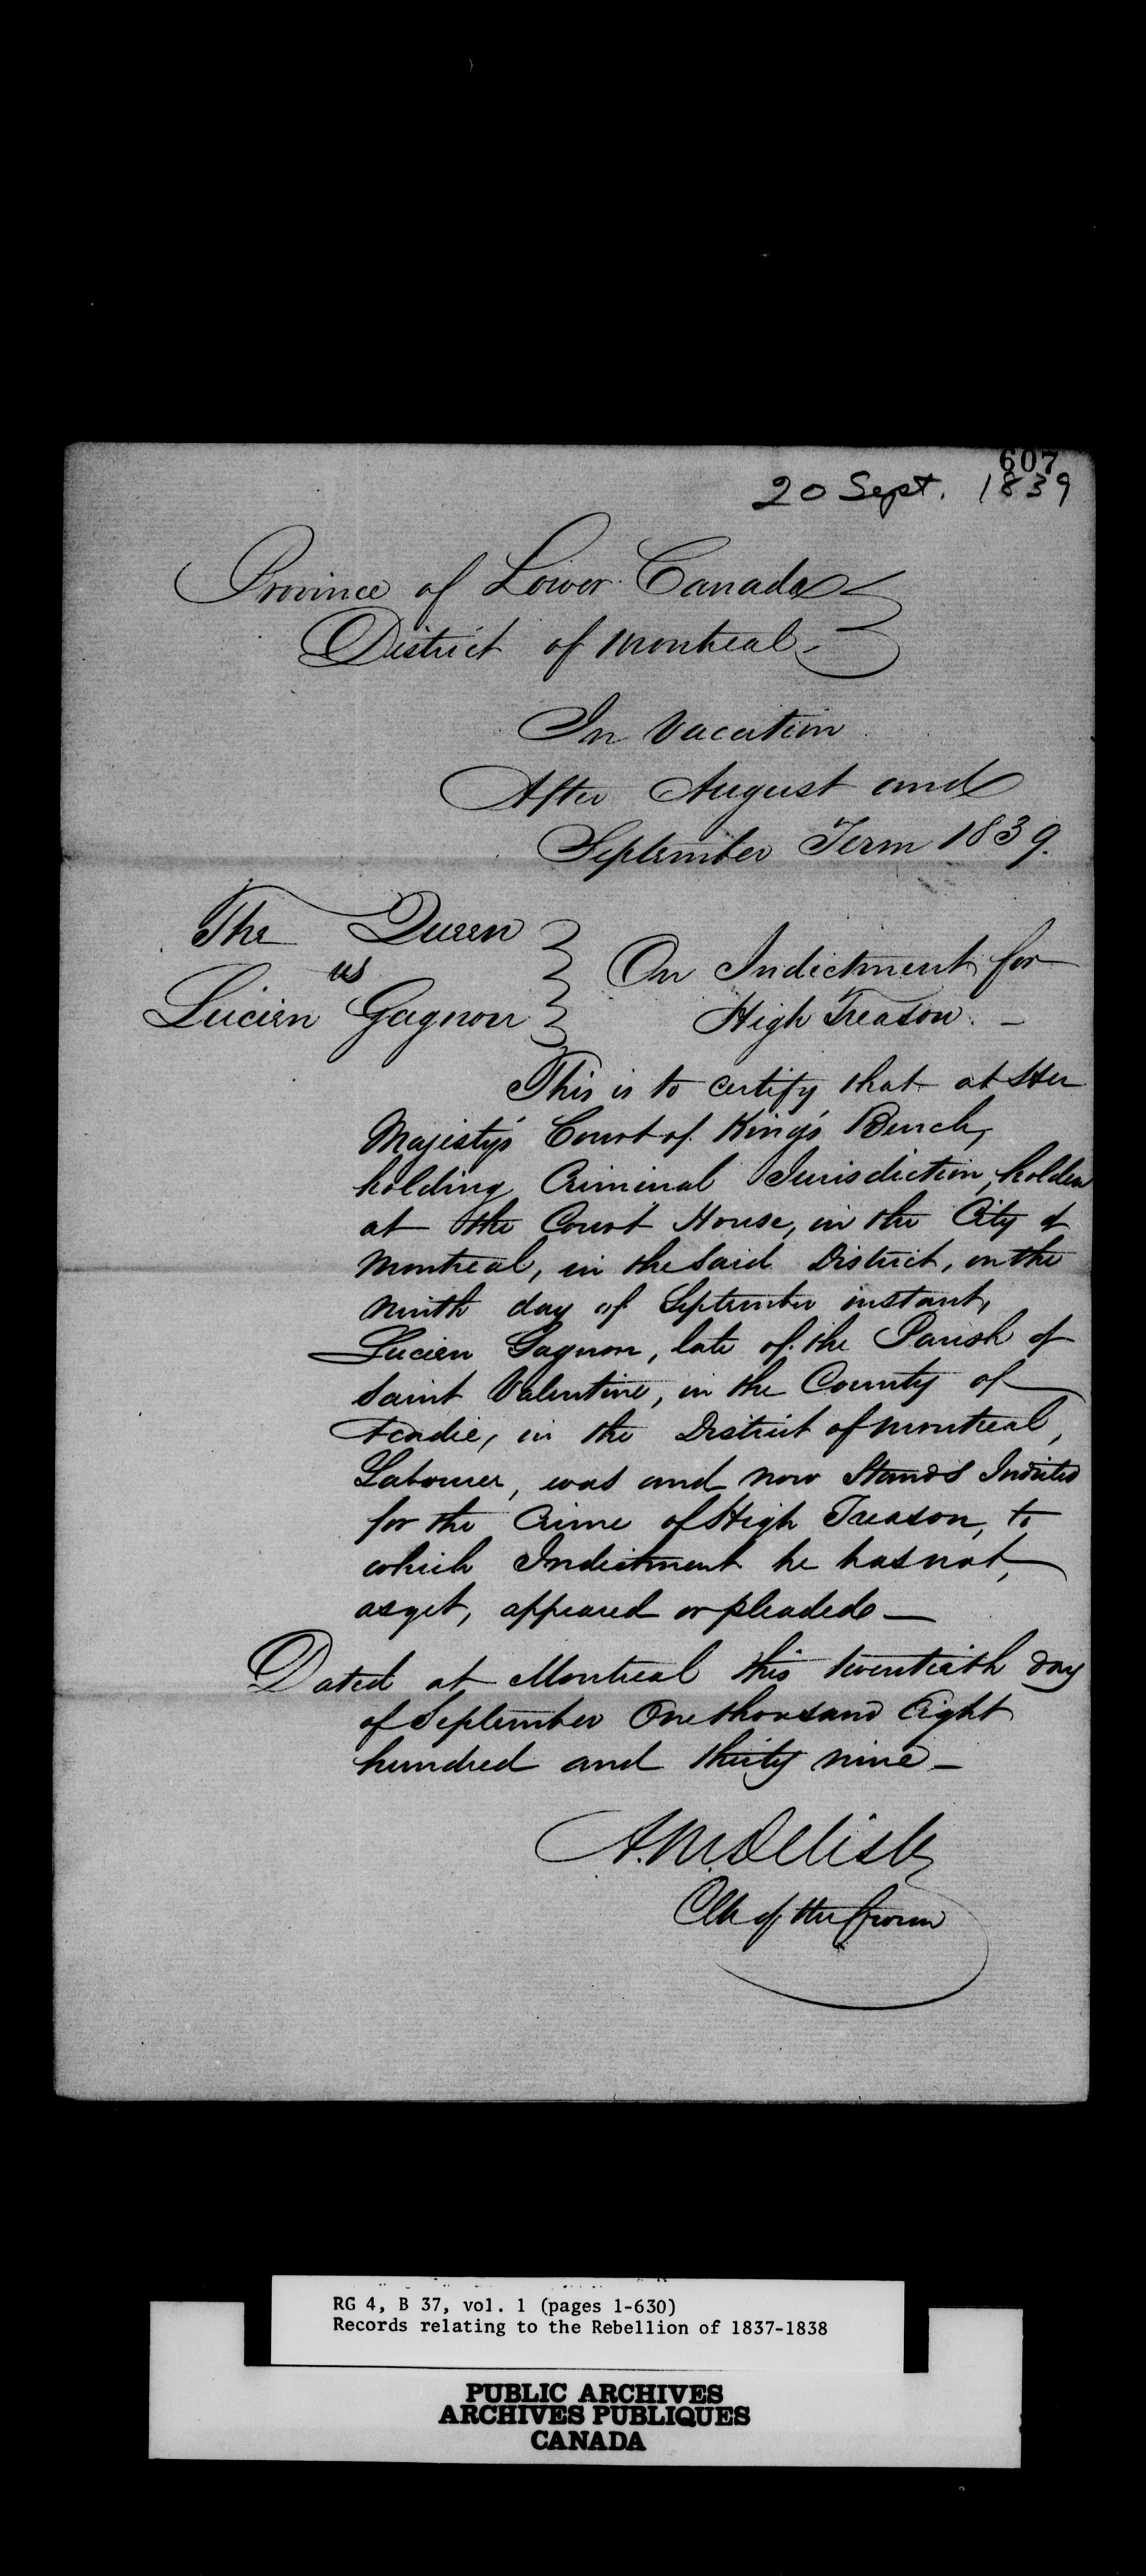 607
20 Sept. 1839
Province of Lower Canada
District of Montreal
In Vacation
After August and
September Term 1839.
The Queen
vs
Lucien Gagnon
On Indictment for
High Treason. —
This is to certify that at Her
Majesty's Court of King's Bench,
holding Criminal Jurisdiction, holden
at the Court House, in the City of
Montreal, in the said District, on the
ninth day of September instant,
Lucien Gagnon, late of the Parish of
Saint Valentine, in the County of
Acadie, in the District of Montreal,
Labourer, was and now Stands Indicted
for the Crime of High Treason, to
which Indictment he has not,
as yet, appeared or pleaded —
Dated at Montreal this twentieth day
of September One thousand Eight
hundred and thirty nine —
A. M. Delisle
Clk of the Crown
RG 4, B 37, vol. 1 (pages 1-630)
Records relating to the Rebellion of 1837-1838
PUBLIC ARCHIVES
ARCHIVES PUBLIQUES
CANADA